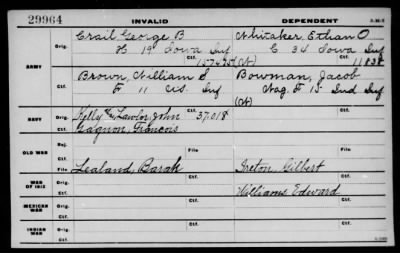 29964 INVALID DEPENDENT 3-14-5
ARMY Orig. Crail George B Whitaker, Ethan O
H 19 Iowa Inf C 34 Iowa Inf
Ctf. (N) 11838
Ctf. Brown, William S Bowman, Jacob
F 11 Inf F 15 Ind Inf
(N)
NAVY Orig. Kelly Lawlor, John 37,018
Ctf. Gagnon, Francois Ctf.
OLD WAR Rej. File
Ctf. File
WAR OF 1812 Orig. Lealand, Barak Ireton, Gilbert
Ctf. Williams Edward
MEXICAN WAR Orig. Ctf.
Ctf.
INDIAN WAR Orig. Ctf.
Ctf.